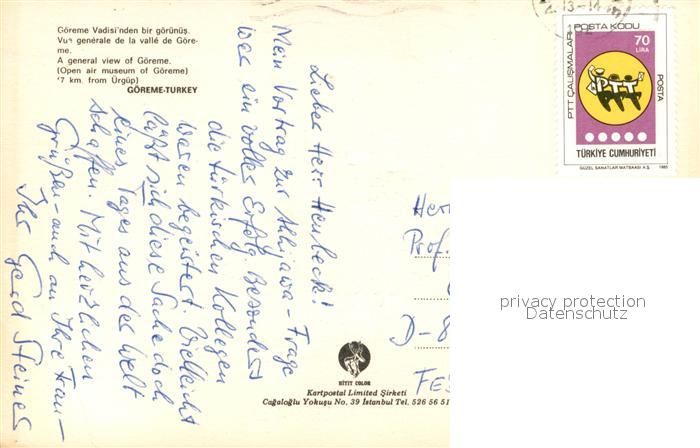 Göreme Vadisi'nden bir görünüş.
Vue générale de la vallé de Göre-
me.
A general view of Göreme.
(Open air museum of Göreme)
'7 km. from Ürgüp)
GÖREME-TURKEY
Lieber Herr Heubeck!
Mein Vortrag zur Ahhijawa-Frage
war ein voller Erfolg. Besonders
die türkischen Kollegen
waren begeistert. Vielleicht
läßt sich diese Sache doch
eines Tages aus der Welt
schaffen. Mit herzlichen
Grüßen - auch an Ihre Frau -
Ihr Gerd Steiner
HİTİT COLOR
Kartpostal Limited Şirketi
Cağaloğlu Yokuşu No. 39 İstanbul Tel. 526 56 51
13-14
PTT ÇALIŞMALARI
POSTA KODU
70
LİRA
PTT
POSTA
TÜRKİYE CUMHURİYETİ
GÜZEL SANATLAR MATBAASI A.Ş. 1985
Her
Prof.
D-8
privacy protection
Datenschutz